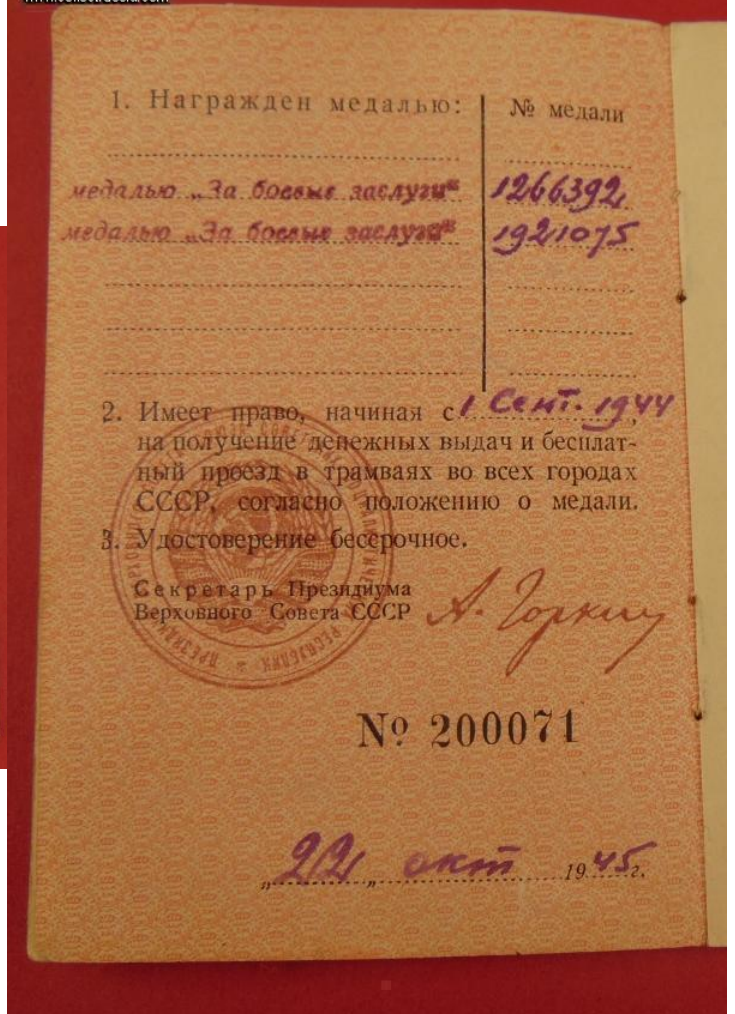 1. Награжден медалью: № медали
медалью „За боевые заслуги“ 1266392
медалью „За боевые заслуги“ 1921075
2. Имеет право, начиная с 1 Сент. 1944,
на получение денежных выдач и бесплат-
ный проезд в трамваях во всех городах
СССР, согласно положению о медали.
3. Удостоверение бессрочное.
Секретарь Президиума
Верховного Совета СССР А. Горкин
№ 200071
„22„ окт 1945г.